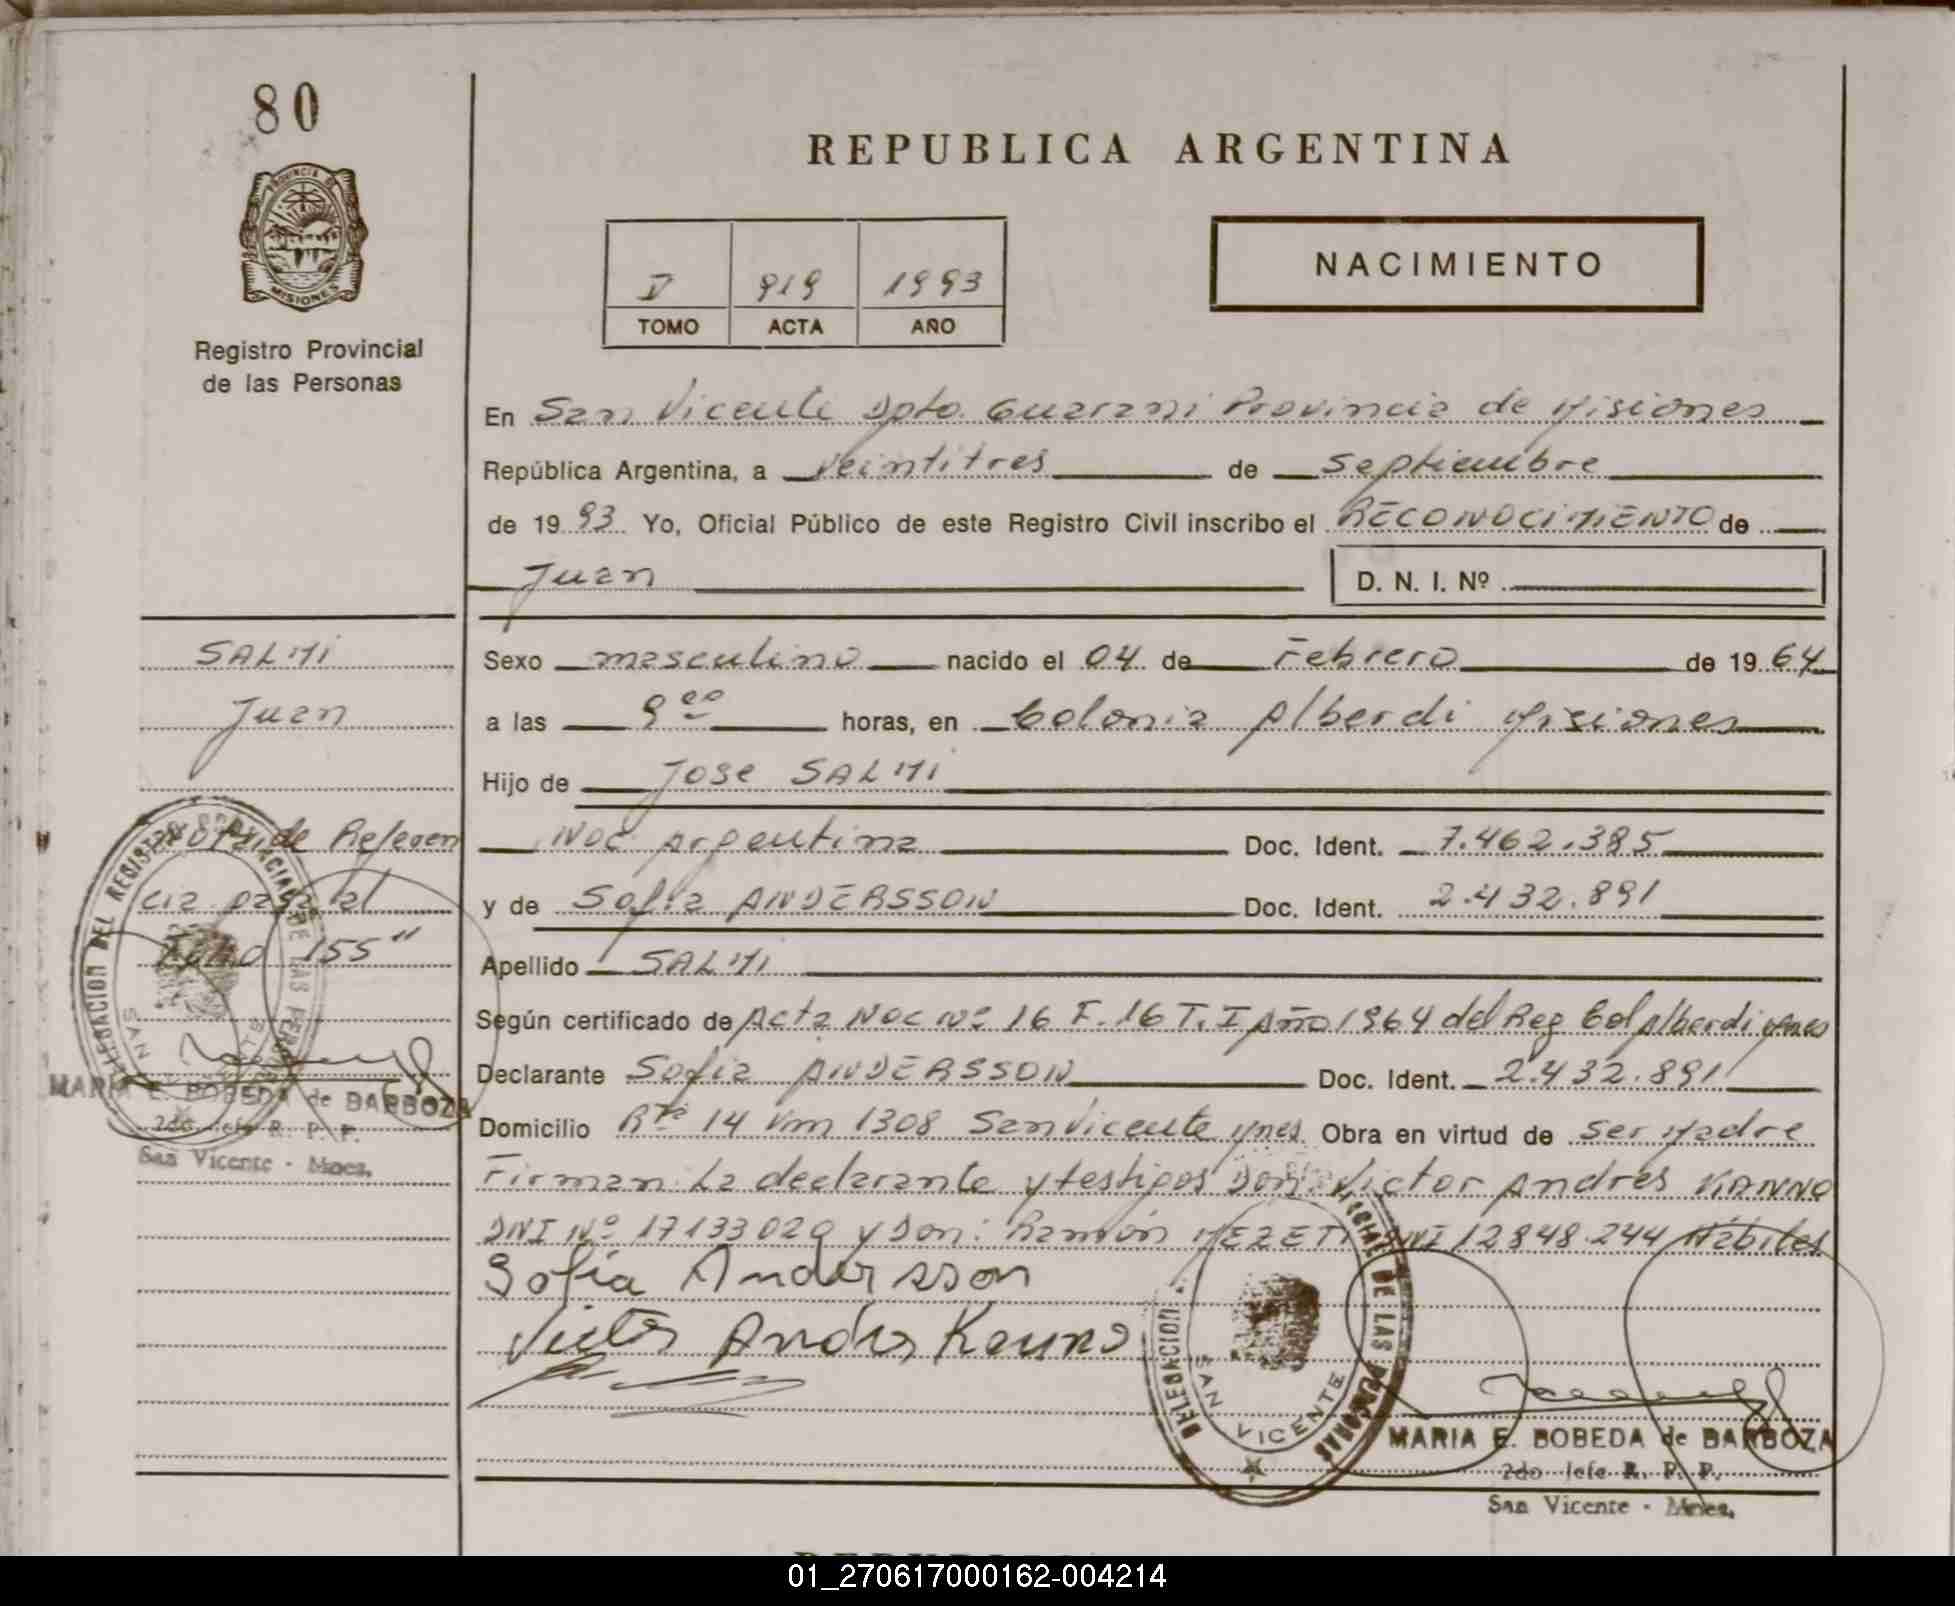 80
PROVINCIA DE
MISIONES
Registro Provincial
de las Personas
REPUBLICA ARGENTINA
V 919 1993
TOMO ACTA AÑO
NACIMIENTO
En San Vicente Dpto. Guarani Provincia de Misiones
República Argentina, a veintitres de septiembre
de 1993 Yo, Oficial Público de este Registro Civil inscribo el RECONOCIMIENTO de
Juan D. N. I. Nº
SALMI
Juan
Nota de Referen
cia pasa al
Folio 155"
MARIA E. BOBEDA de BARBOZA
2do Jefe R. P. P.
San Vicente - Mnes.
Sexo masculino nacido el 04 de Febrero de 1964
a las 9 00 horas, en Colonia Alberdi Misiones
Hijo de Jose SALMI
Nac Argentina Doc. Ident. 7.462.385
y de Sofia ANDERSSON Doc. Ident. 2.432.891
Apellido SALMI
Según certificado de Acta Nac Nº 16 F. 16 T. I Año 1964 del Reg Col Alberdi Mnes
Declarante Sofia ANDERSSON Doc. Ident. 2.432.891
Domicilio Rta 14 Km 1308 San Vicente Mnes Obra en virtud de ser Madre
Firman: La declarante y testigos Don: Victor Andrés KANNO
DNI Nº 17133029 y Don: Ramón DNI 12848.244 Hábiles
Sofía Andersson
Victor Andres Kanno
DELEGACION DE LAS PERSONAS
SAN VICENTE
MARIA E. BOBEDA de BARBOZA
2do Jefe R. P. P.
San Vicente - Mnes.
01_270617000162-004214